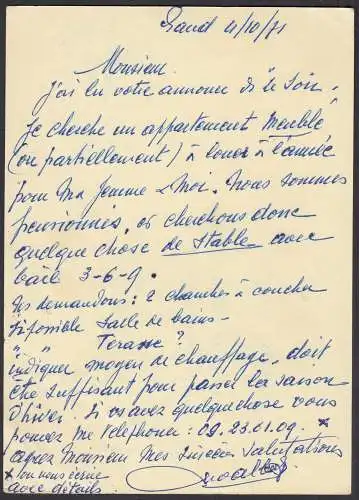 Gand 4/10/71
Monsieur
J'ai lu votre annonce de "le Soir".
Je cherche un appartement Meublé
(ou partiellement) à louer à l'année
pour Ma femme & Moi. Nous sommes
pensionnés, et cherchons donc
quelque chose de Stable avec
bail 3-6-9.
Ns demandons: 2 chambres à coucher
si possible Salle de bains -
" " Terasse ?
indiquer moyen de chauffage, doit
être suffisant pour passer la saison
d'hiver. Si vs avez quelque chose vous
pouvez me téléphoner: 09.23.61.09. *
agréez Monsieur Mes Sincères Salutations
* ou nous écrire
avec détails.